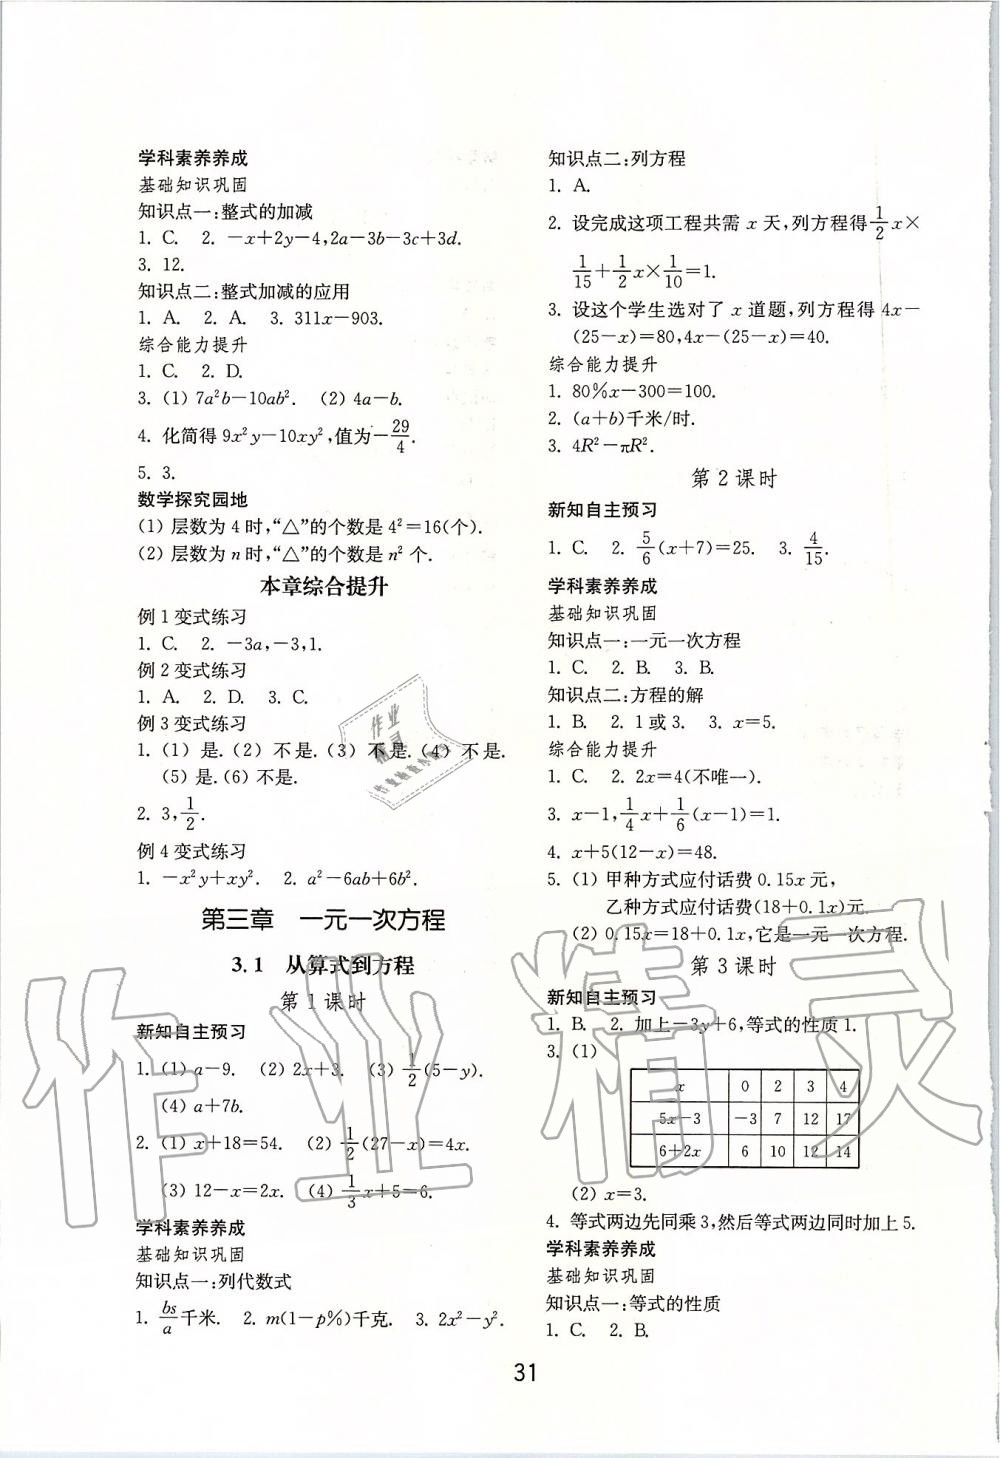 学科素养养成
基础知识巩固
知识点一:整式的加减
1. C.  2. －x＋2y－4,2a－3b－3c＋3d.
3. 12.
知识点二:整式加减的应用
1. A.  2. A.  3. 311x－903.
综合能力提升
1. C.  2. D.
3. (1) 7a²b－10ab².  (2) 4a－b.
4. 化简得 9x²y－10xy²,值为－29/4.
5. 3.
数学探究园地
(1) 层数为 4 时,“△”的个数是 4²＝16(个).
(2) 层数为 n 时,“△”的个数是 n² 个.
本章综合提升
例 1 变式练习
1. C.  2. －3a,－3,1.
例 2 变式练习
1. A.  2. D.  3. C.
例 3 变式练习
1. (1) 是. (2) 不是. (3) 不是. (4) 不是.
(5) 是. (6) 不是.
2. 3,1/2.
例 4 变式练习
1. －x²y＋xy².  2. a²－6ab＋6b².
第三章  一元一次方程
3.1  从算式到方程
第 1 课时
新知自主预习
1. (1) a－9.  (2) 2x＋3.  (3) 1/2(5－y).
(4) a＋7b.
2. (1) x＋18＝54.  (2) 1/2(27－x)＝4x.
(3) 12－x＝2x.  (4) 1/3x＋5＝6.
学科素养养成
基础知识巩固
知识点一:列代数式
1. bs/a千米.  2. m(1－p%)千克.  3. 2x²－y².
知识点二:列方程
1. A.
2. 设完成这项工程共需 x 天,列方程得1/2x×
1/15＋1/2x×1/10＝1.
3. 设这个学生选对了 x 道题,列方程得 4x－
(25－x)＝80,4x－(25－x)＝40.
综合能力提升
1. 80%x－300＝100.
2. (a＋b)千米/时.
3. 4R²－πR².
第 2 课时
新知自主预习
1. C.  2. 5/6(x＋7)＝25.  3. 4/15.
学科素养养成
基础知识巩固
知识点一:一元一次方程
1. C.  2. B.  3. B.
知识点二:方程的解
1. B.  2. 1 或 3.  3. x＝5.
综合能力提升
1. C.  2. 2x＝4(不唯一).
3. x－1,1/4x＋1/6(x－1)＝1.
4. x＋5(12－x)＝48.
5. (1) 甲种方式应付话费 0.15x 元,
乙种方式应付话费(18＋0.1x)元.
(2) 0.15x＝18＋0.1x,它是一元一次方程.
第 3 课时
新知自主预习
1. B.  2. 加上－3y＋6,等式的性质 1.
3. (1)
x 0 2 3 4
5x－3 －3 7 12 17
6＋2x 6 10 12 14
(2) x＝3.
4. 等式两边先同乘 3,然后等式两边同时加上 5.
学科素养养成
基础知识巩固
知识点一:等式的性质
1. C.  2. B.
31
作业精灵
作业
精灵